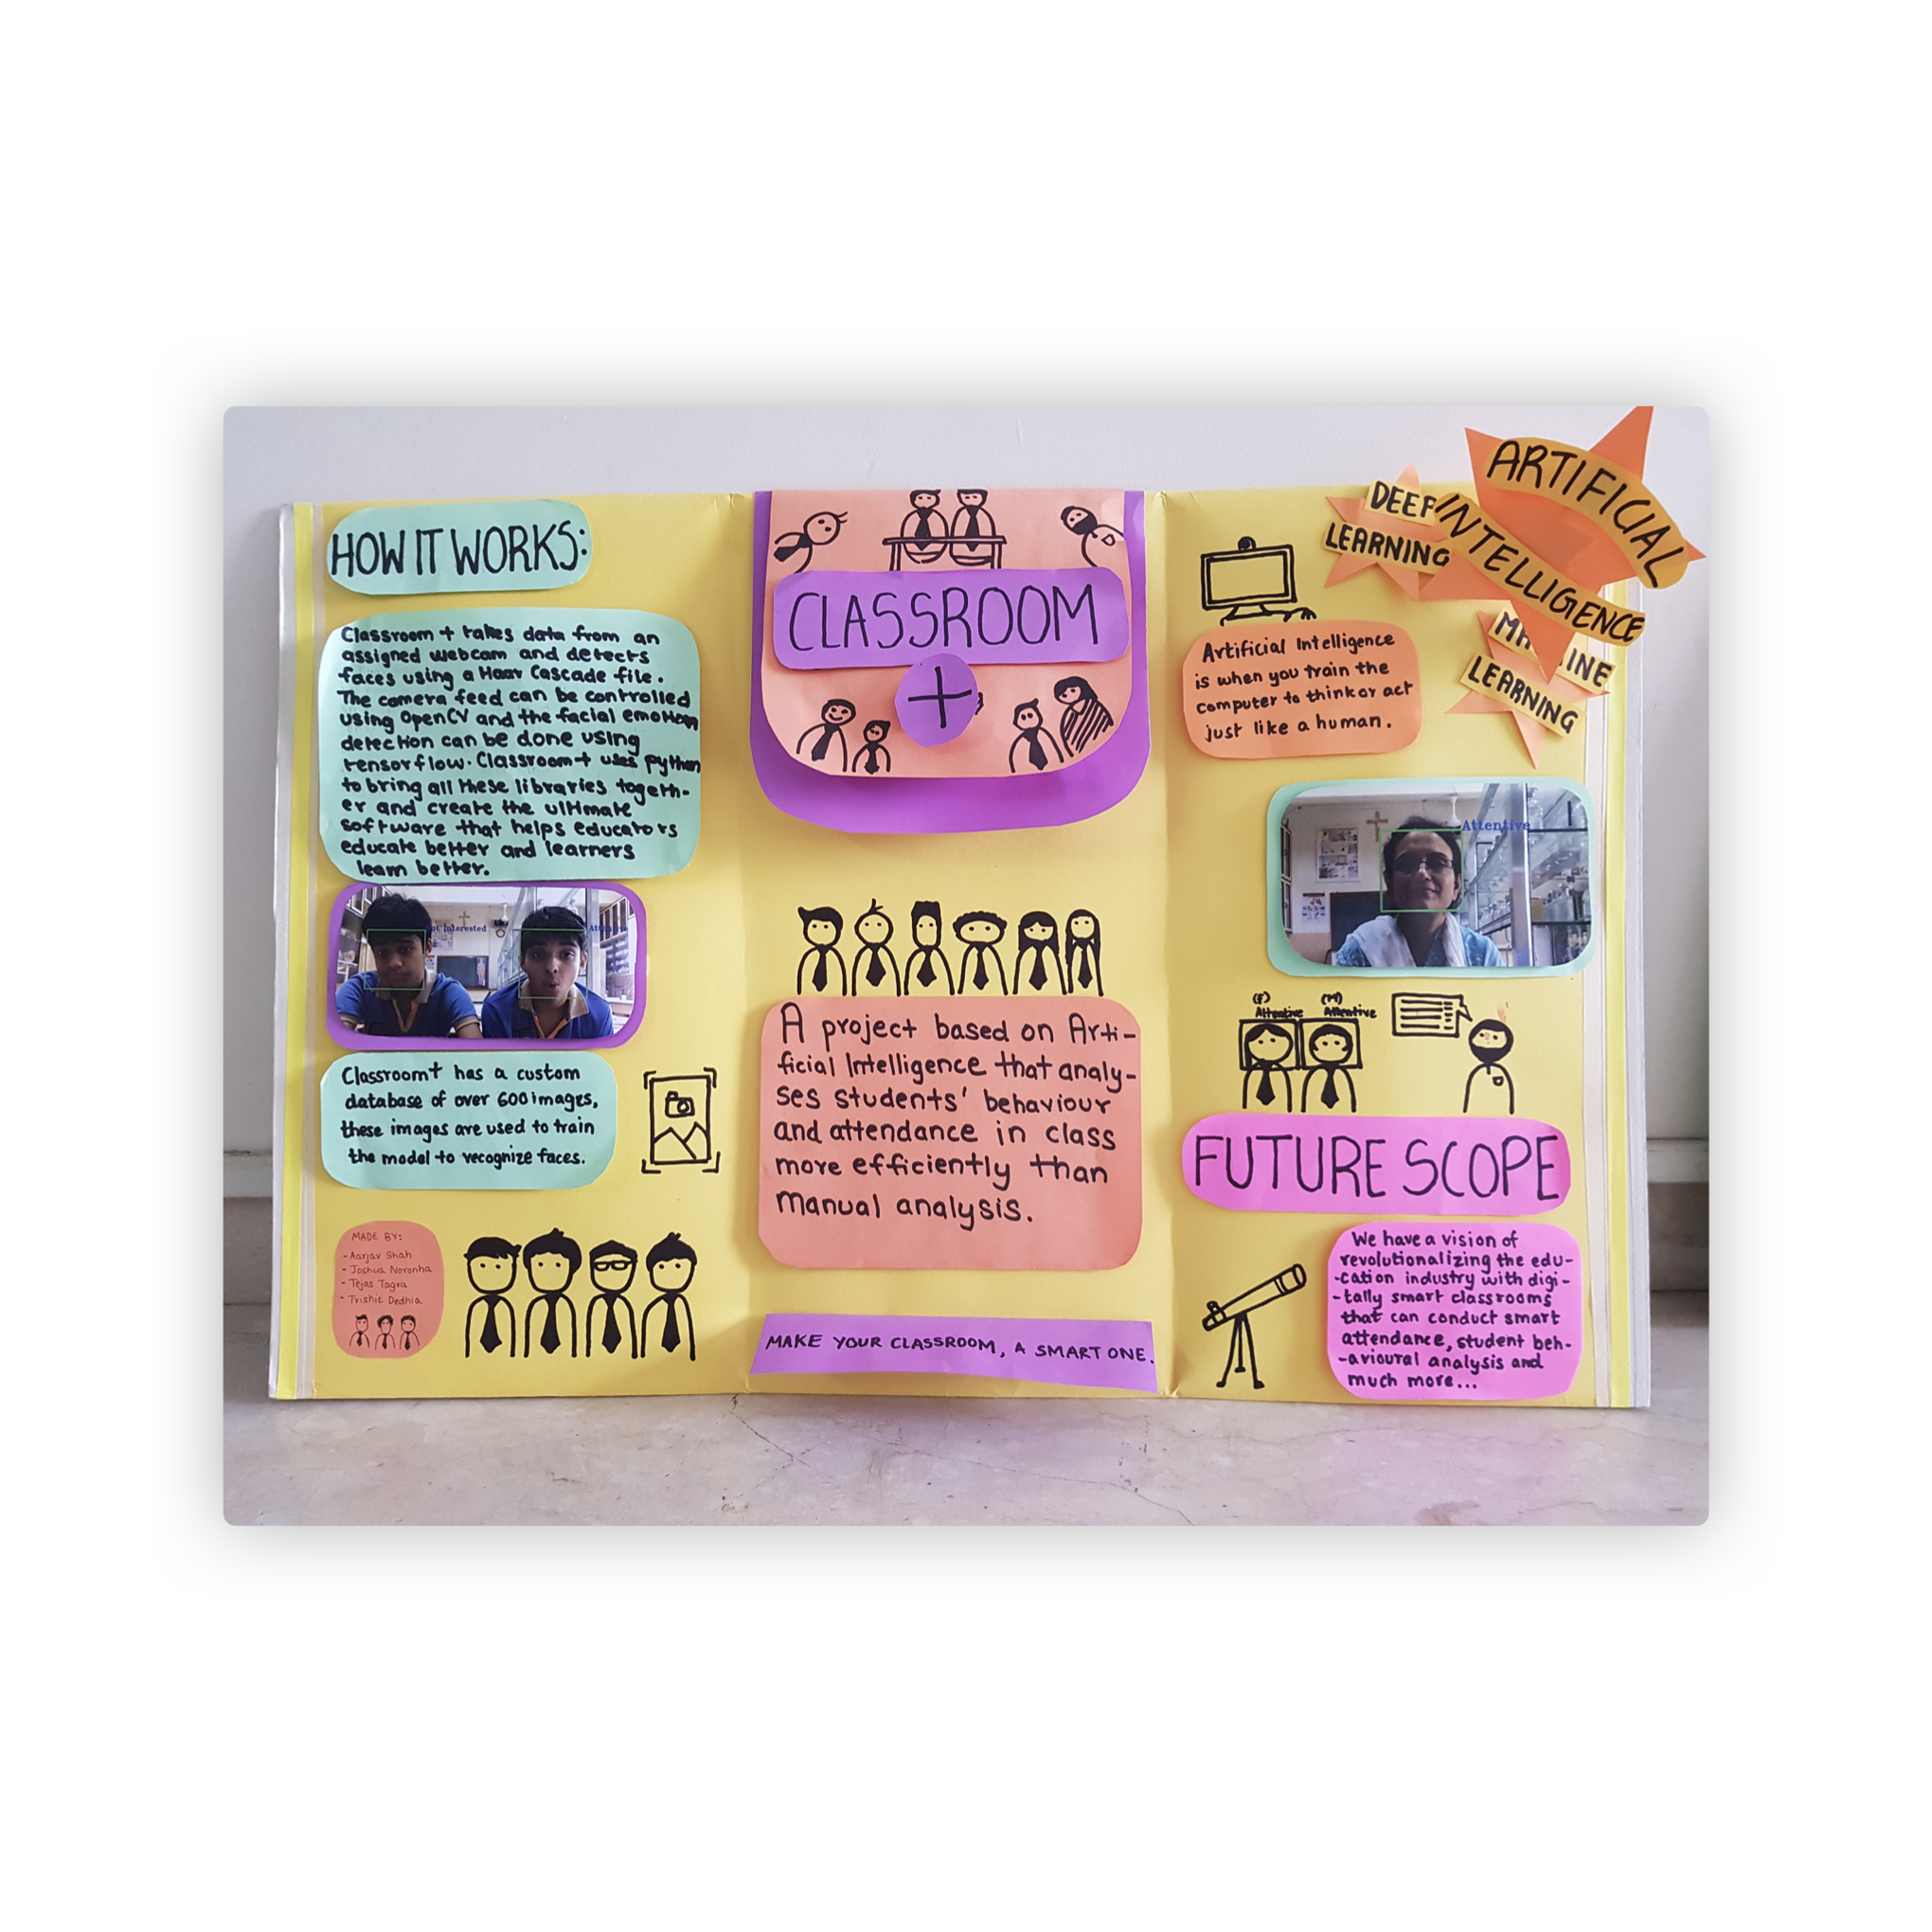 HOW IT WORKS:
Classroom + takes data from an
assigned webcam and detects
faces using a Haar Cascade file.
The camera feed can be controlled
using OpenCV and the facial emotion
detection can be done using
tensorflow. Classroom+ uses python
to bring all these libraries togeth-
er and create the ultimate
software that helps educators
educate better and learners
learn better.
Interested
Classroom+ has a custom
database of over 600 images,
these images are used to train
the model to recognize faces.
MADE BY:
- Aarjav Shah
- Joshua Noronha
- Tejas Tagra
- Trishit Dedhia
CLASSROOM
+
A project based on Arti-
ficial Intelligence that analy-
ses students' behaviour
and attendance in class
more efficiently than
manual analysis.
MAKE YOUR CLASSROOM, A SMART ONE.
ARTIFICIAL
INTELLIGENCE
DEEP
LEARNING
LEARNING
Artificial Intelligence
is when you train the
computer to think or act
just like a human.
Attentive
(F) (M)
Attentive Attentive
FUTURE SCOPE
We have a vision of
revolutionalizing the edu-
-cation industry with digi-
-tally smart classrooms
that can conduct smart
attendance, student beh-
-avioural analysis and
much more...